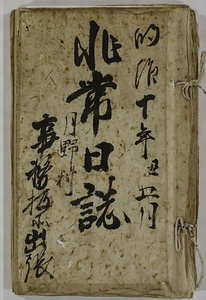 明治十年丑五月
非常日誌
月野村
事務所出張